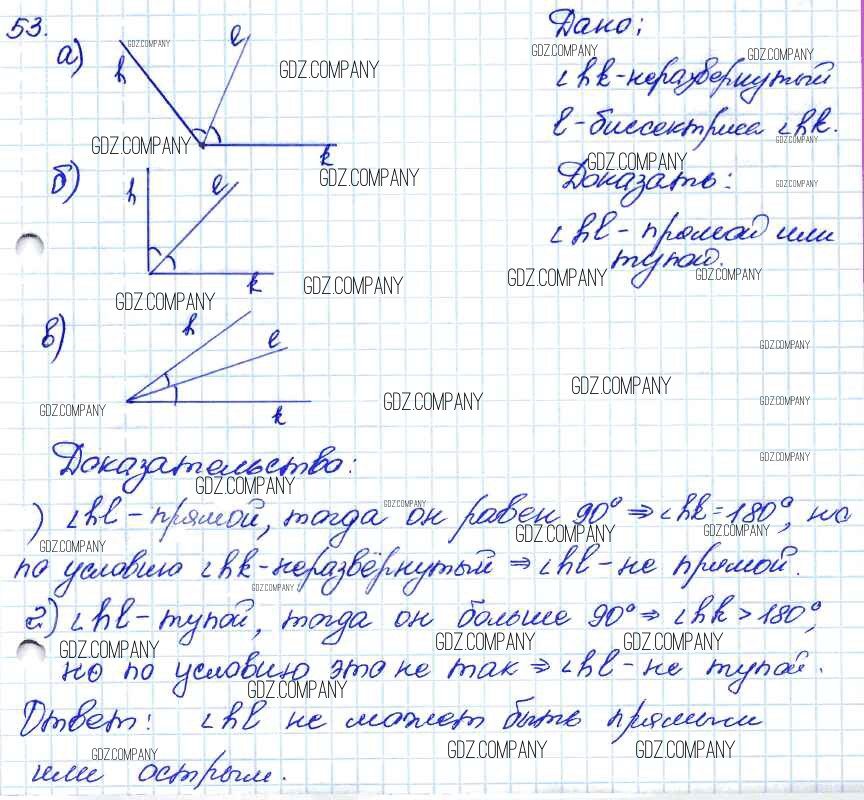 53.
а)
h
l
k
б)
h
l
k
в)
h
l
k
Дано:
∠hk-неразвернутый
l-биссектриса ∠hk.
Доказать:
∠hl - прямой или
тупой.
Доказательство:
) ∠hl - прямой, тогда он равен 90° ⇒ ∠hk = 180°, но
по условию ∠hk-неразвёрнутый ⇒ ∠hl - не прямой.
2) ∠hl - тупой, тогда он больше 90° ⇒ ∠hk > 180°,
но по условию это не так ⇒ ∠hl - не тупой.
Ответ: ∠hl не может быть прямым
или острым.
GDZ.COMPANY